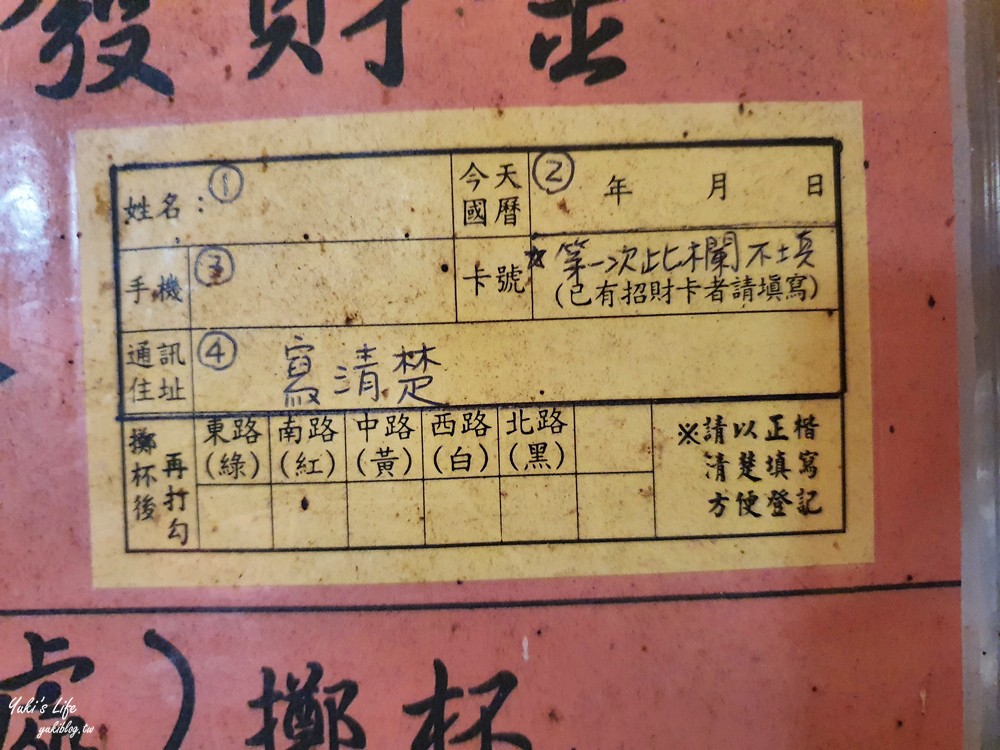 發財金
姓名：①
今天國曆
② 年 月 日
手機 ③
卡號
*第一次此欄不填
(已有招財卡者請填寫)
通訊住址 ④ 寫清楚
擲杯後再打勾
東路(綠) 南路(紅) 中路(黃) 西路(白) 北路(黑)
※請以正楷
清楚填寫
方便登記
處)擲杯
Yuki's Life
yukiblog.tw